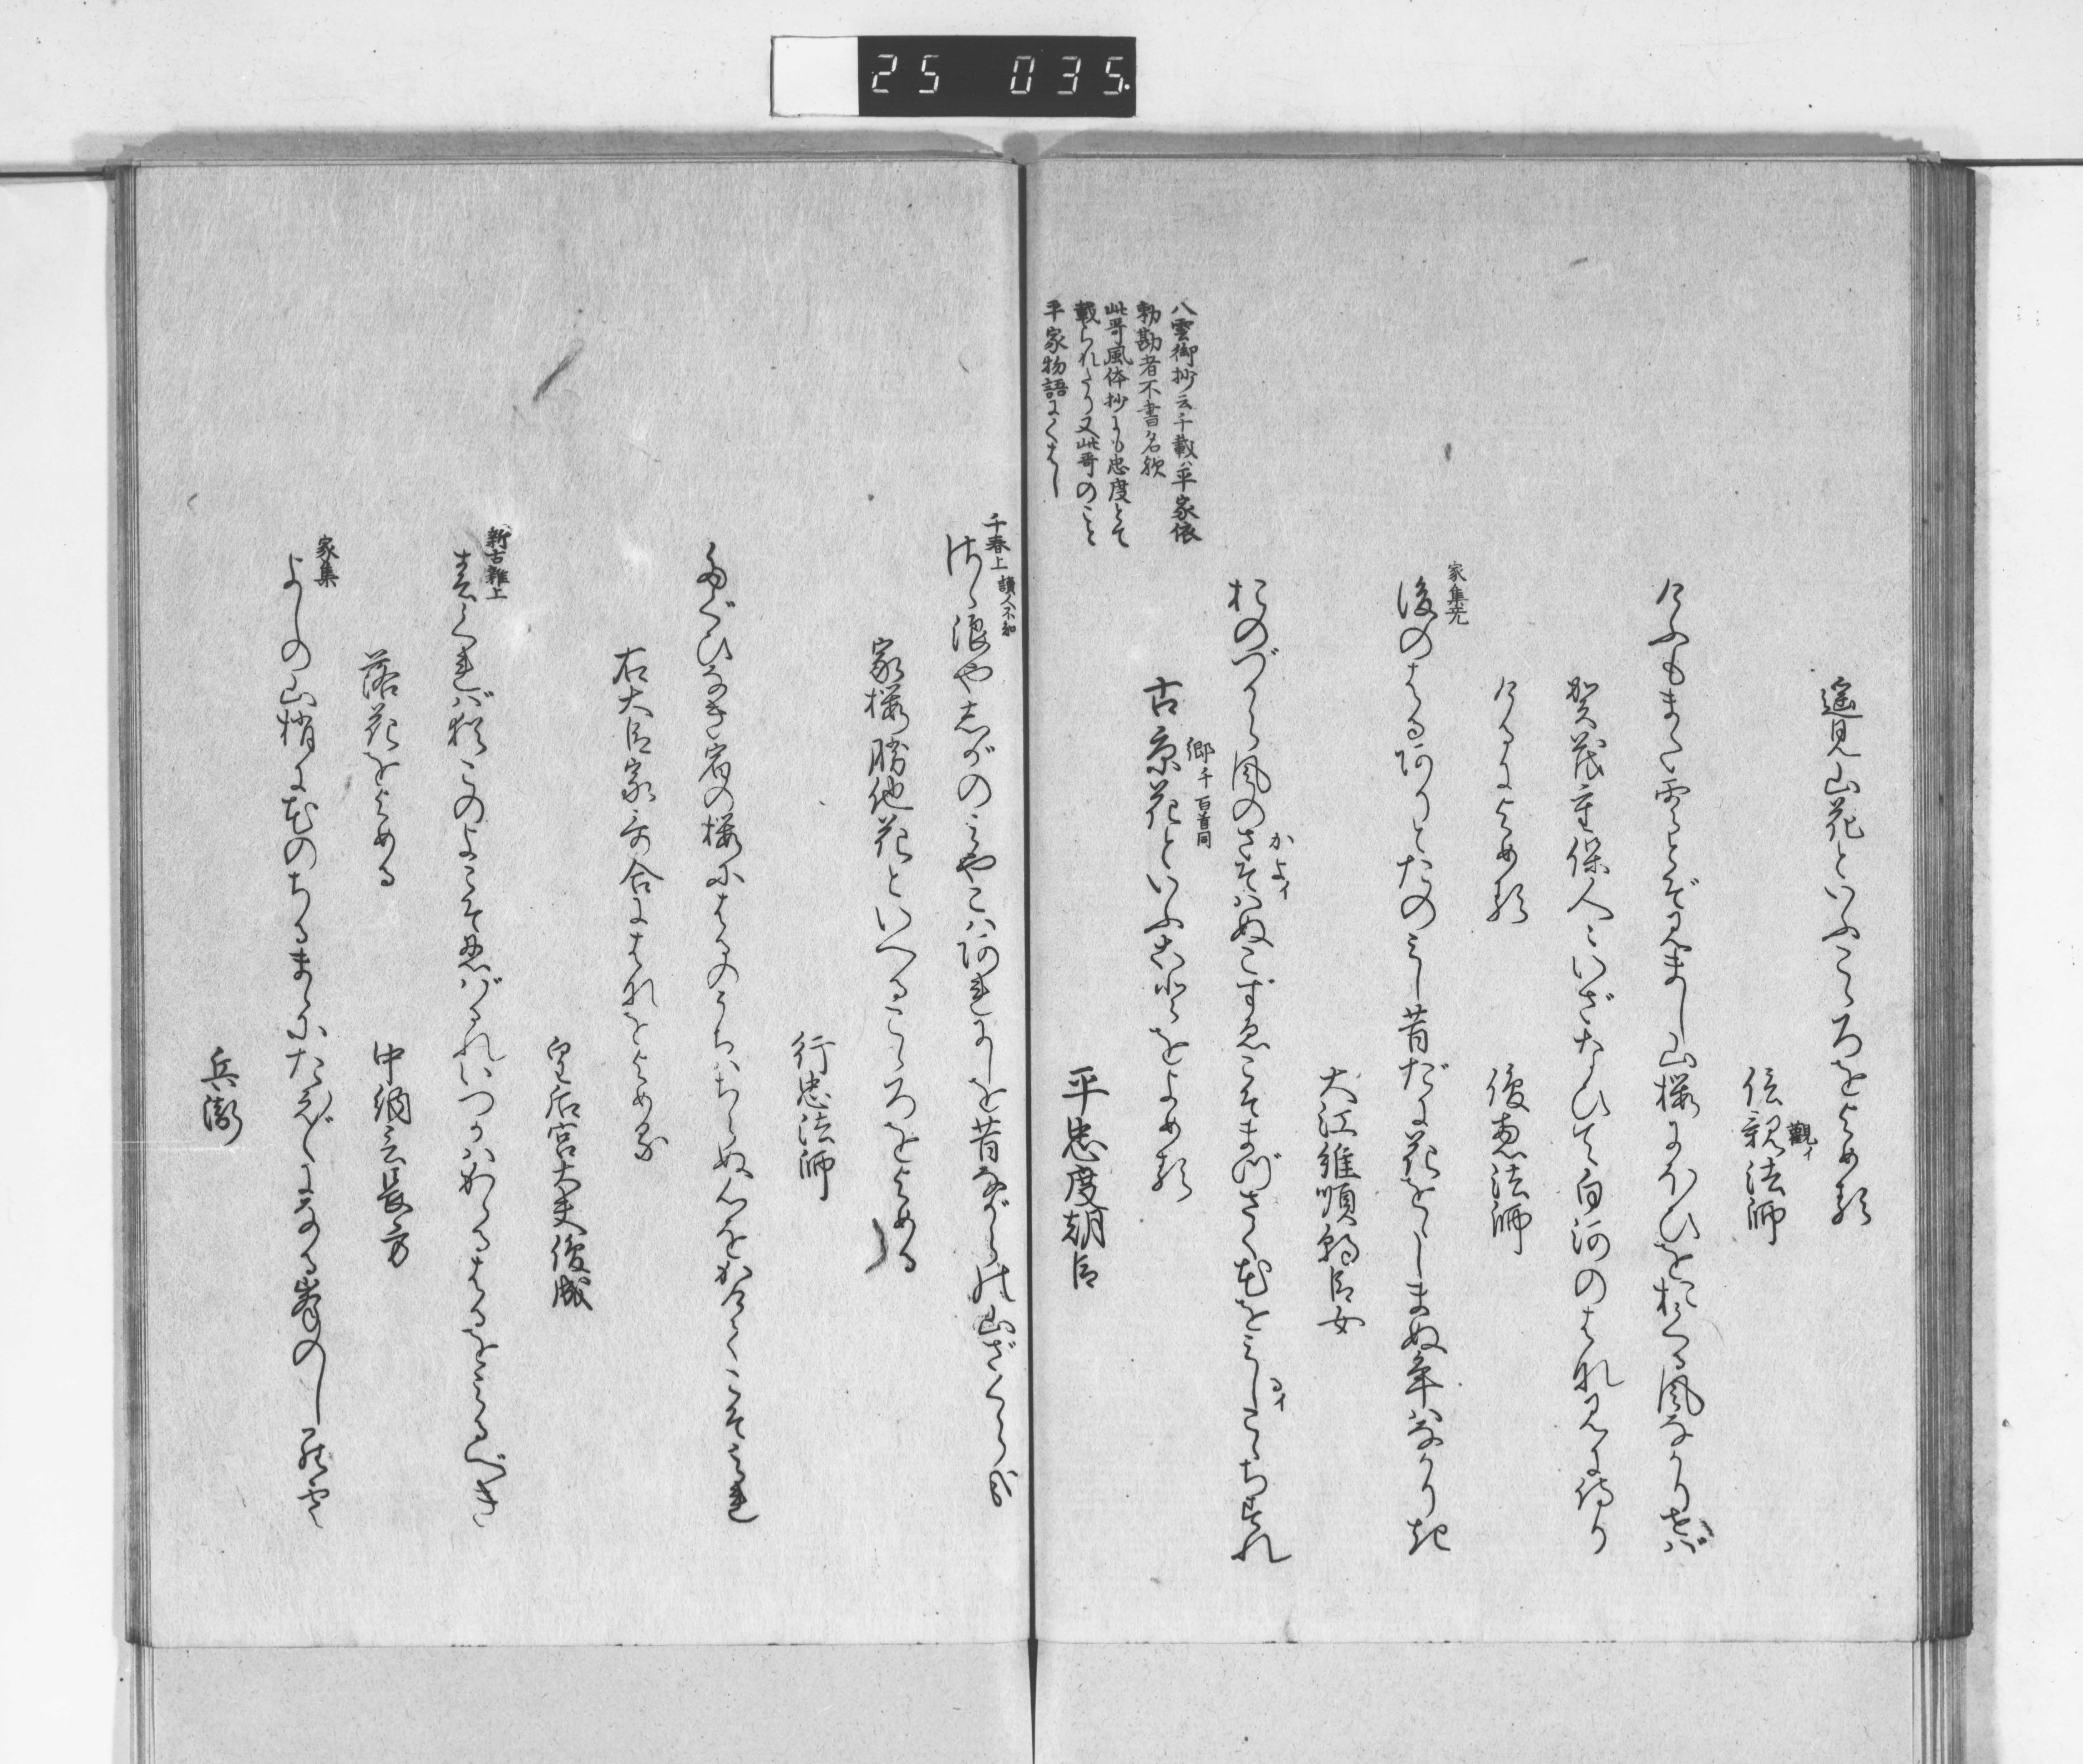 25 035.
遥見山花といふこゝろをよめる
信親法師
觀イ
けふもまた雪とぞみまし山桜にほひをおくる風なかりせば
賀茂重保人々いざなひて白河のはな見に侍り
けるによめる
俊恵法師
家集
後のはるありとたのみし昔だに花をゝしまぬ年はなかりき
大江維順朝臣女
おのづから風のさそはぬこずゑこそまづさく花をみしこゝちすれ
かよイ
るイ
古京花といふ心をよめる
郷千
百首同
平忠度朝臣
八雲御抄云千載ハ平家依
勅勘者不書名歟
此哥風体抄にも忠度とて
載られたり又此哥のこと
平家物語にくはし
千春上
讀人不知
さゝ浪やしがのみやこはあれにしを昔ながらの山ざくらかな
家桜勝他花といへるこゝろをよめる
行忠法師
たぐひなき宿の桜にはるのうちはちらぬ心をかけてこそみれ
右大臣家哥合にはなをよめる
皇后宮大夫俊成
新古雜上
春くれば猶このよこそ忍ばるれいつかはかゝるはるをみるべき
落花をよめる
中納言長方
家集
よしの山梢に花のちるまゝにたえ〴〵になる峯のしら雲
兵衛